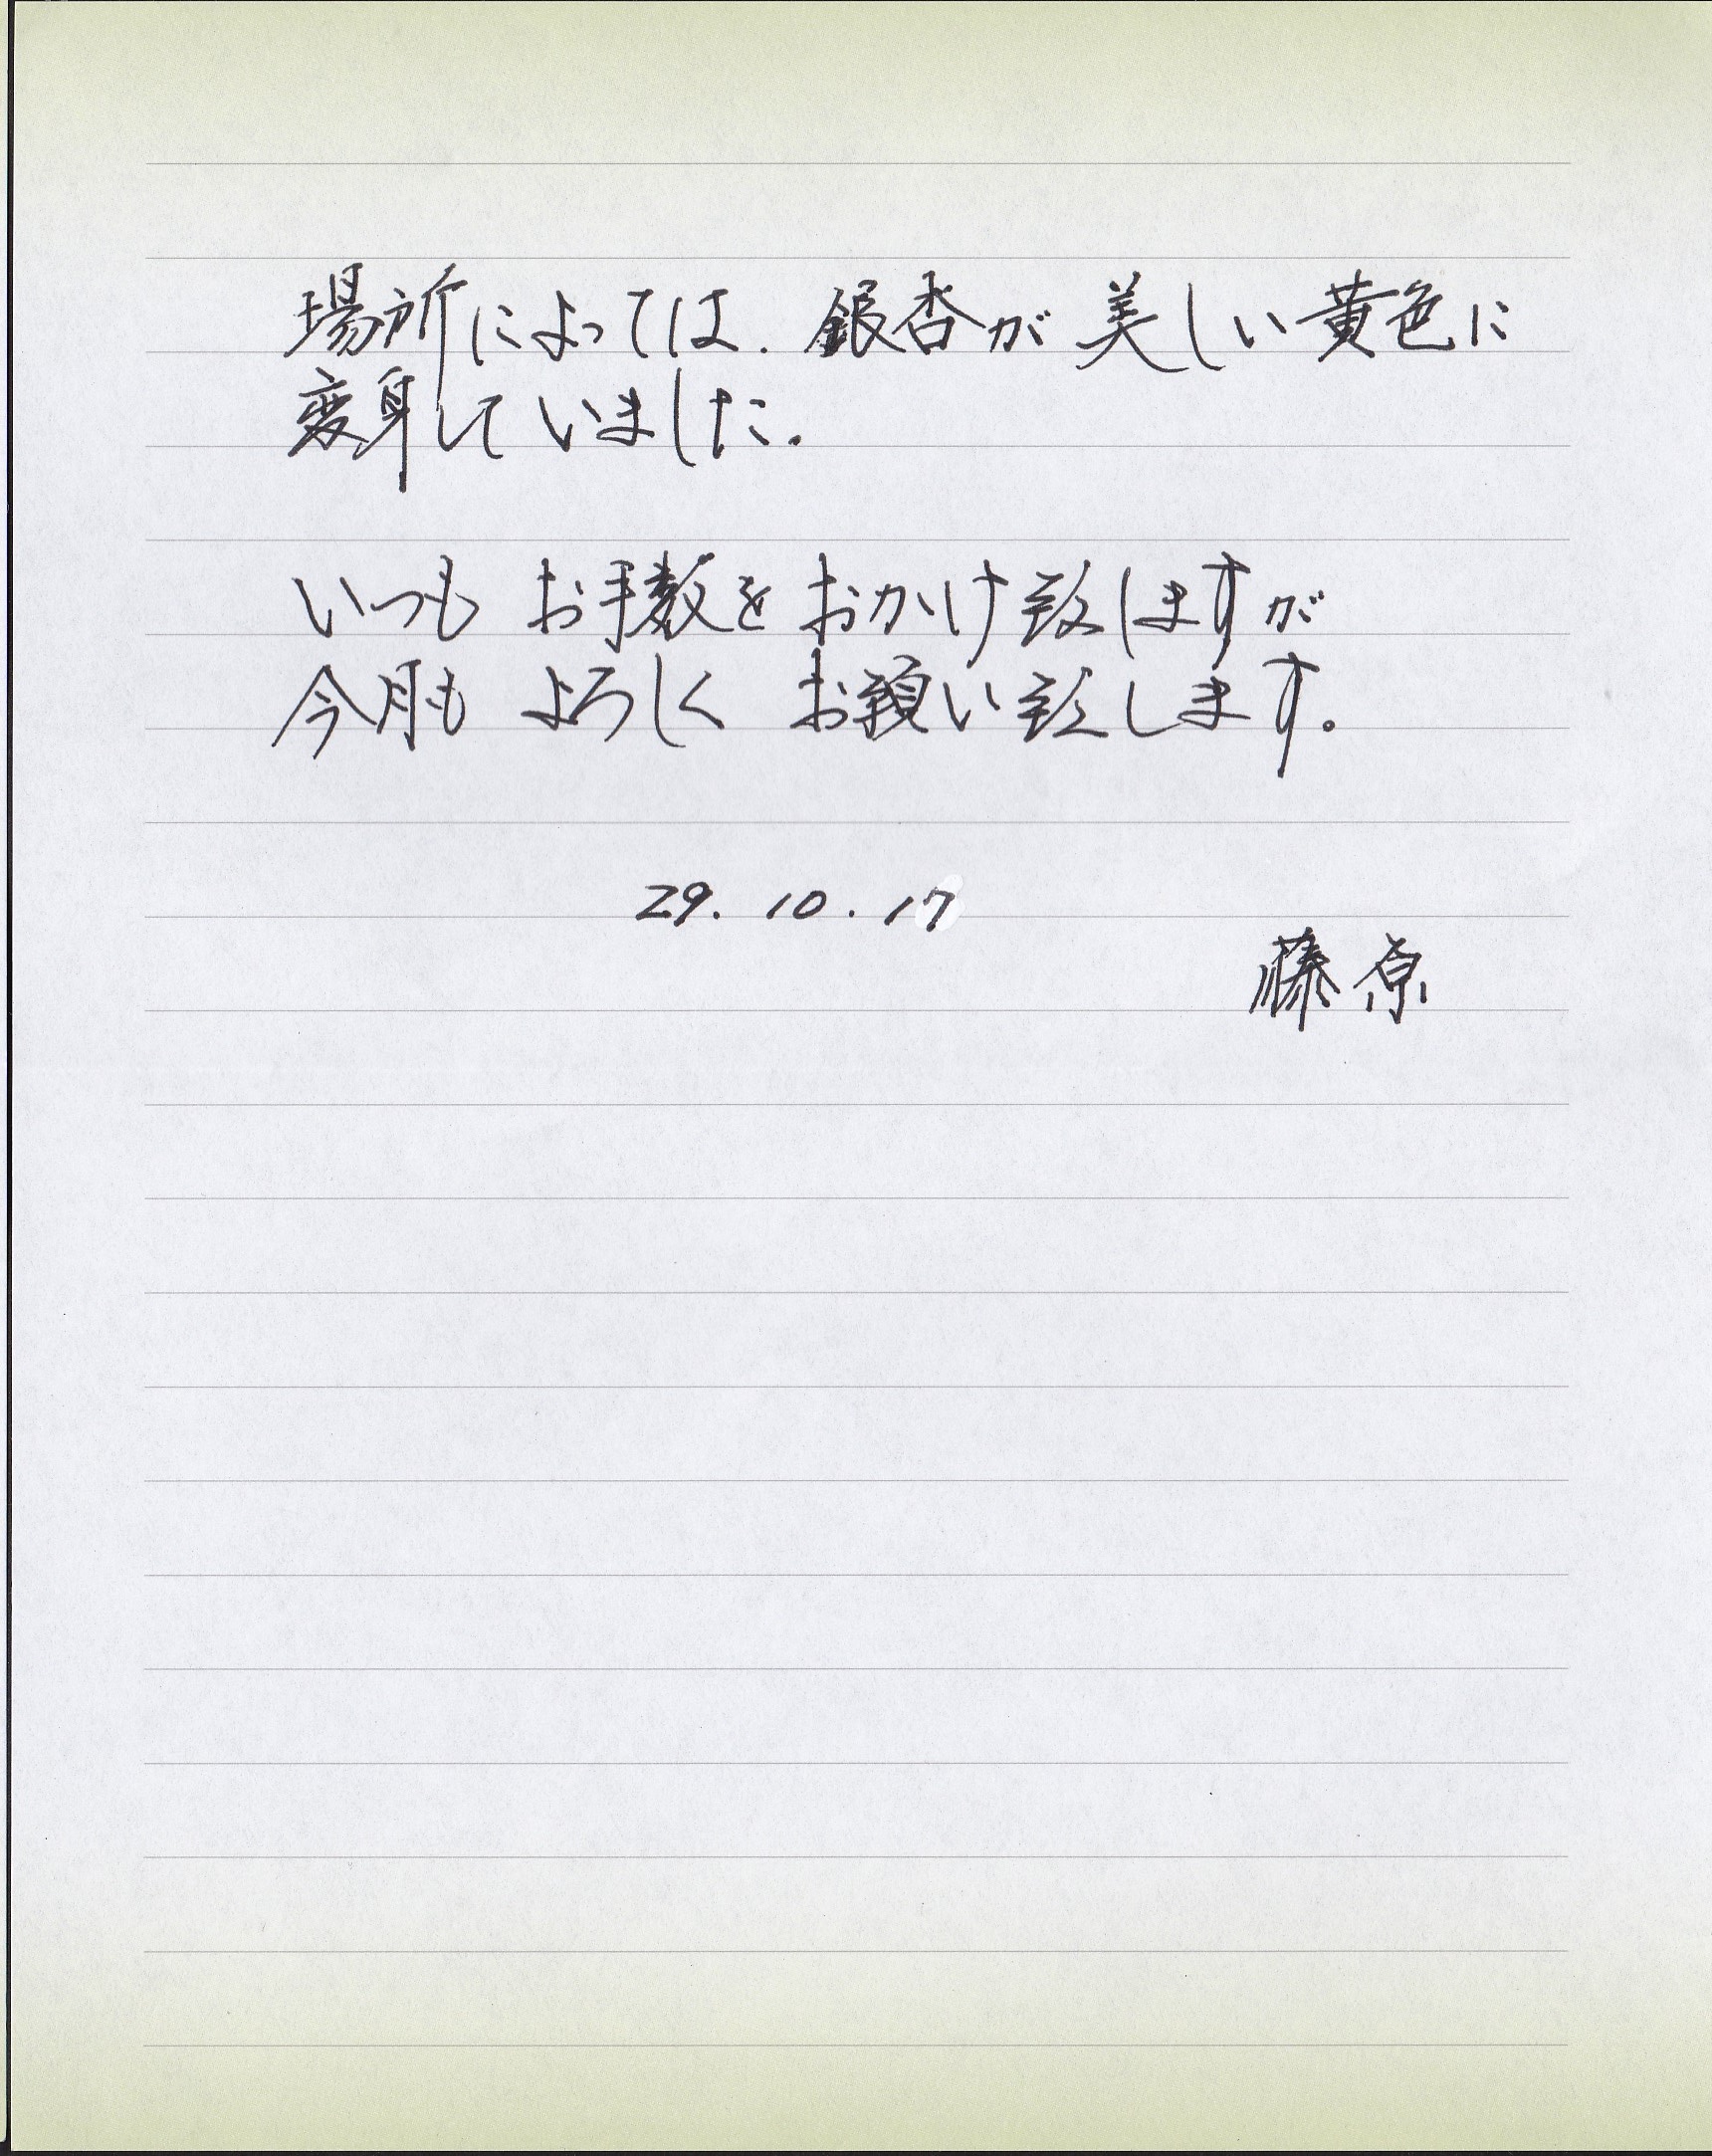 場所によっては、銀杏が美しい黄色に
変身していました。
いつも お手数を おかけ致しますが
今月も よろしく お願い致します。
29. 10. 17
藤原